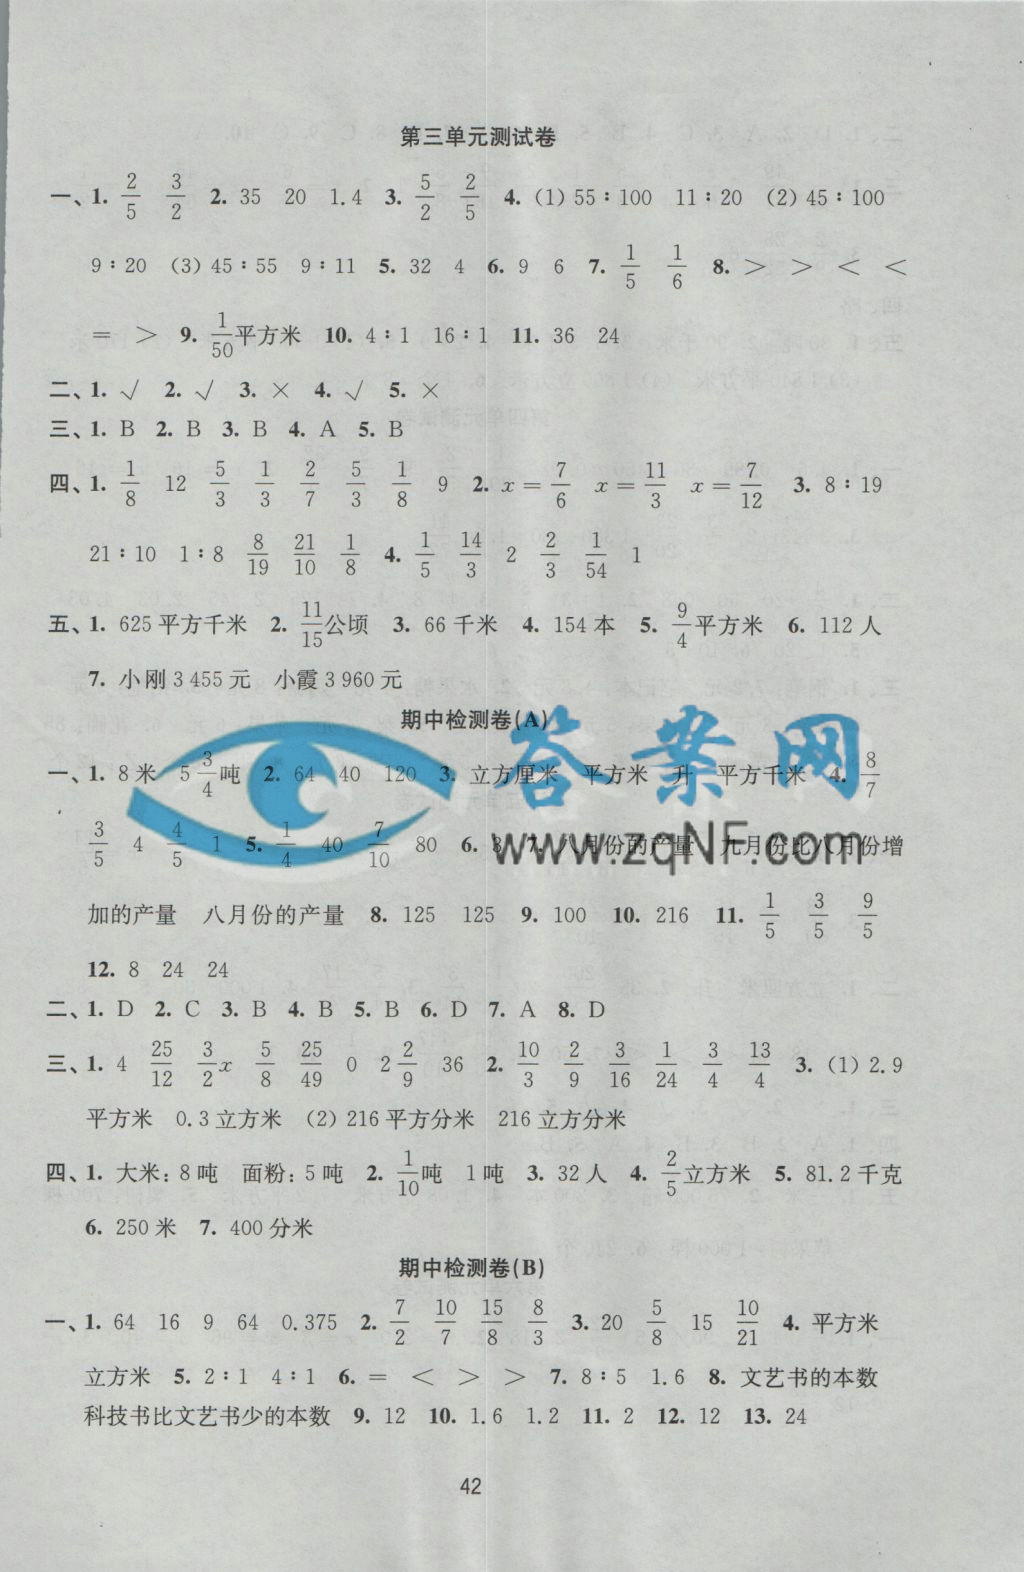 第三单元测试卷
一、1. 2/5 3/2 2. 35 20 1.4 3. 5/2 2/5 4. (1) 55∶100 11∶20 (2) 45∶100
9∶20 (3) 45∶55 9∶11 5. 32 4 6. 9 6 7. 1/5 1/6 8. > > < <
= > 9. 1/50平方米 10. 4∶1 16∶1 11. 36 24
二、1. √ 2. √ 3. × 4. √ 5. ×
三、1. B 2. B 3. B 4. A 5. B
四、1. 1/8 12 5/3 1/3 2/7 5/3 1/8 9 2. x=7/6 x=11/3 x=7/12 3. 8∶19
21∶10 1∶8 8/19 21/10 1/8 4. 1/5 14/3 2 2/3 1/54 1
五、1. 625平方千米 2. 11/15公顷 3. 66千米 4. 154本 5. 9/4平方米 6. 112人
7. 小刚3 455元 小霞3 960元
期中检测卷(A)
一、1. 8米 5 3/4吨 2. 64 40 120 3. 立方厘米 平方米 升 平方千米 4. 8/7
3/5 4 4/5 1 5. 1/4 40 7/10 80 6. 8 7. 八月份的产量 九月份比八月份增
加的产量 八月份的产量 8. 125 125 9. 100 10. 216 11. 1/5 3/5 9/5
12. 8 24 24
二、1. D 2. C 3. B 4. B 5. B 6. D 7. A 8. D
三、1. 4 25/12 3/2x 5/8 25/49 0 2 2/9 36 2. 10/3 2/9 3/16 1/24 3/4 13/4 3. (1) 2.9
平方米 0.3立方米 (2) 216平方分米 216立方分米
四、1. 大米:8吨 面粉:5吨 2. 1/10吨 1吨 3. 32人 4. 2/5立方米 5. 81.2千克
6. 250米 7. 400分米
期中检测卷(B)
一、1. 64 16 9 64 0.375 2. 7/2 10/7 15/8 8/3 3. 20 5/8 15 10/21 4. 平方米
立方米 5. 2∶1 4∶1 6. = < > > 7. 8∶5 1.6 8. 文艺书的本数
科技书比文艺书少的本数 9. 12 10. 1.6 1.2 11. 2 12. 12 13. 24
42
答案网
www.zqNF.com